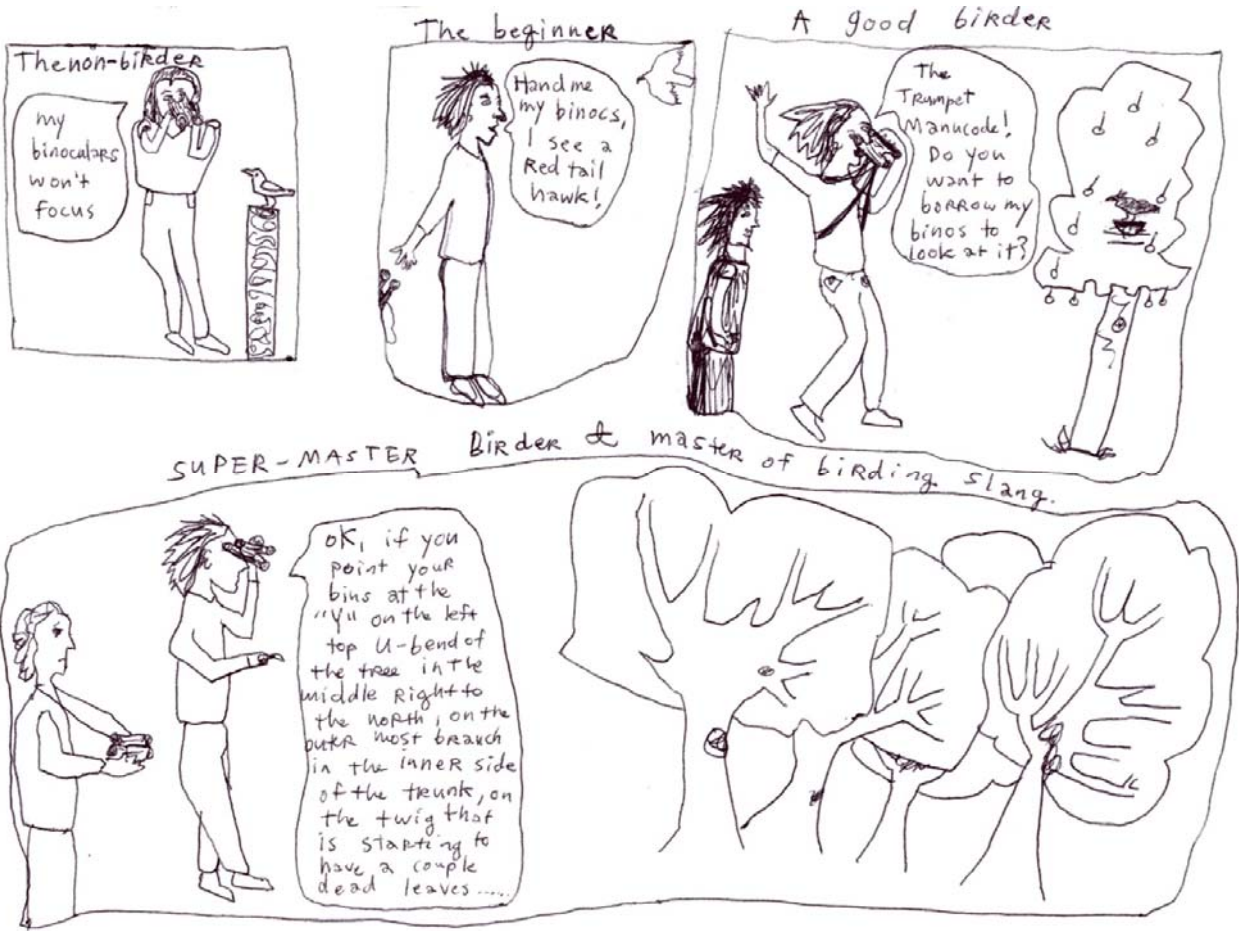 The non-birder
my
binoculars
won't
focus
The beginner
Hand me
my binocs,
I see a
Red tail
hawk!
A good birder
The
Trumpet
Manucode!
Do you
want to
borrow my
binos to
look at it?
SUPER-MASTER Birder & master of birding slang.
OK, if you
point your
bins at the
"Y" on the left
top U-bend of
the tree in the
middle Right to
the north, on the
outer most branch
in the inner side
of the trunk, on
the twig that
is starting to
have a couple
dead leaves.....